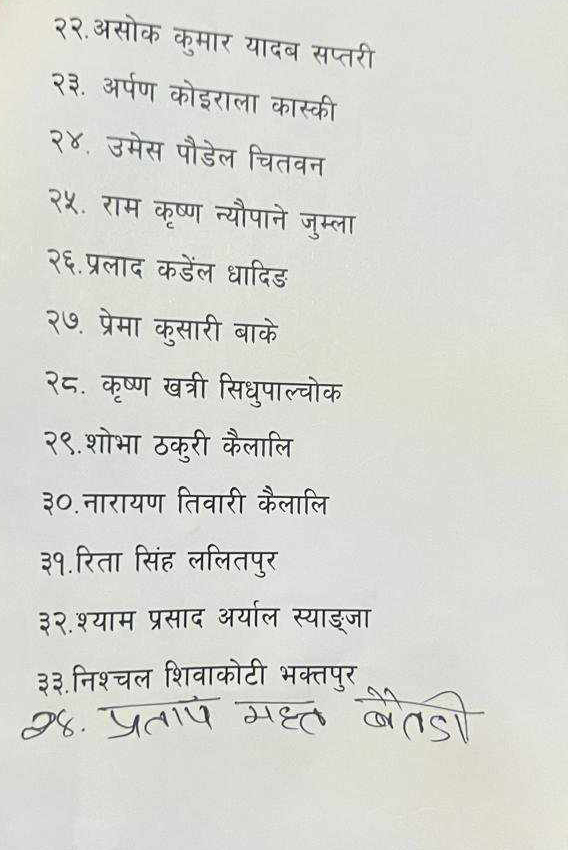 २२.असोक कुमार यादब सप्तरी
२३. अर्पण कोइराला कास्की
२४. उमेस पौडेल चितवन
२५. राम कृष्ण न्यौपाने जुम्ला
२६.प्रलाद कडेंल धादिङ
२७. प्रेमा कुसारी बाके
२८. कृष्ण खत्री सिधुपाल्चोक
२९.शोभा ठकुरी कैलालि
३०.नारायण तिवारी कैलालि
३१.रिता सिंह ललितपुर
३२.श्याम प्रसाद अर्याल स्याङ्जा
३३.निश्चल शिवाकोटी भक्तपुर
३४. प्रताप बैतडी